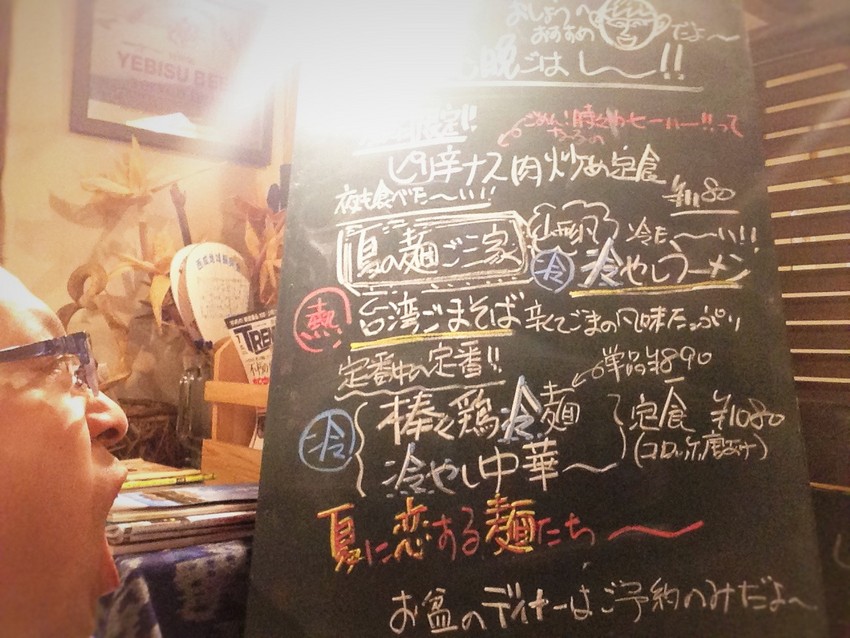 YEBISU BE
おしょうへ
おすすめ だよ〜
晩ごはし〜!!
ごめん!時々わヒーハー!!って
なるの
ピリ辛ナス肉炒め定食
¥1180
夜も食べた〜い!!
夏の麺ご三家
山形風 冷た〜い!!
冷 冷やしラーメン
熱 台湾ごまそば 辛くてごまの風味たっぷり
定番中の定番!!
単品¥890
冷 棒々鶏冷麺
定食 ¥1080
冷やし中華〜
夏に恋する麺たち〜
お盆のディナーはご予約のみだよ〜